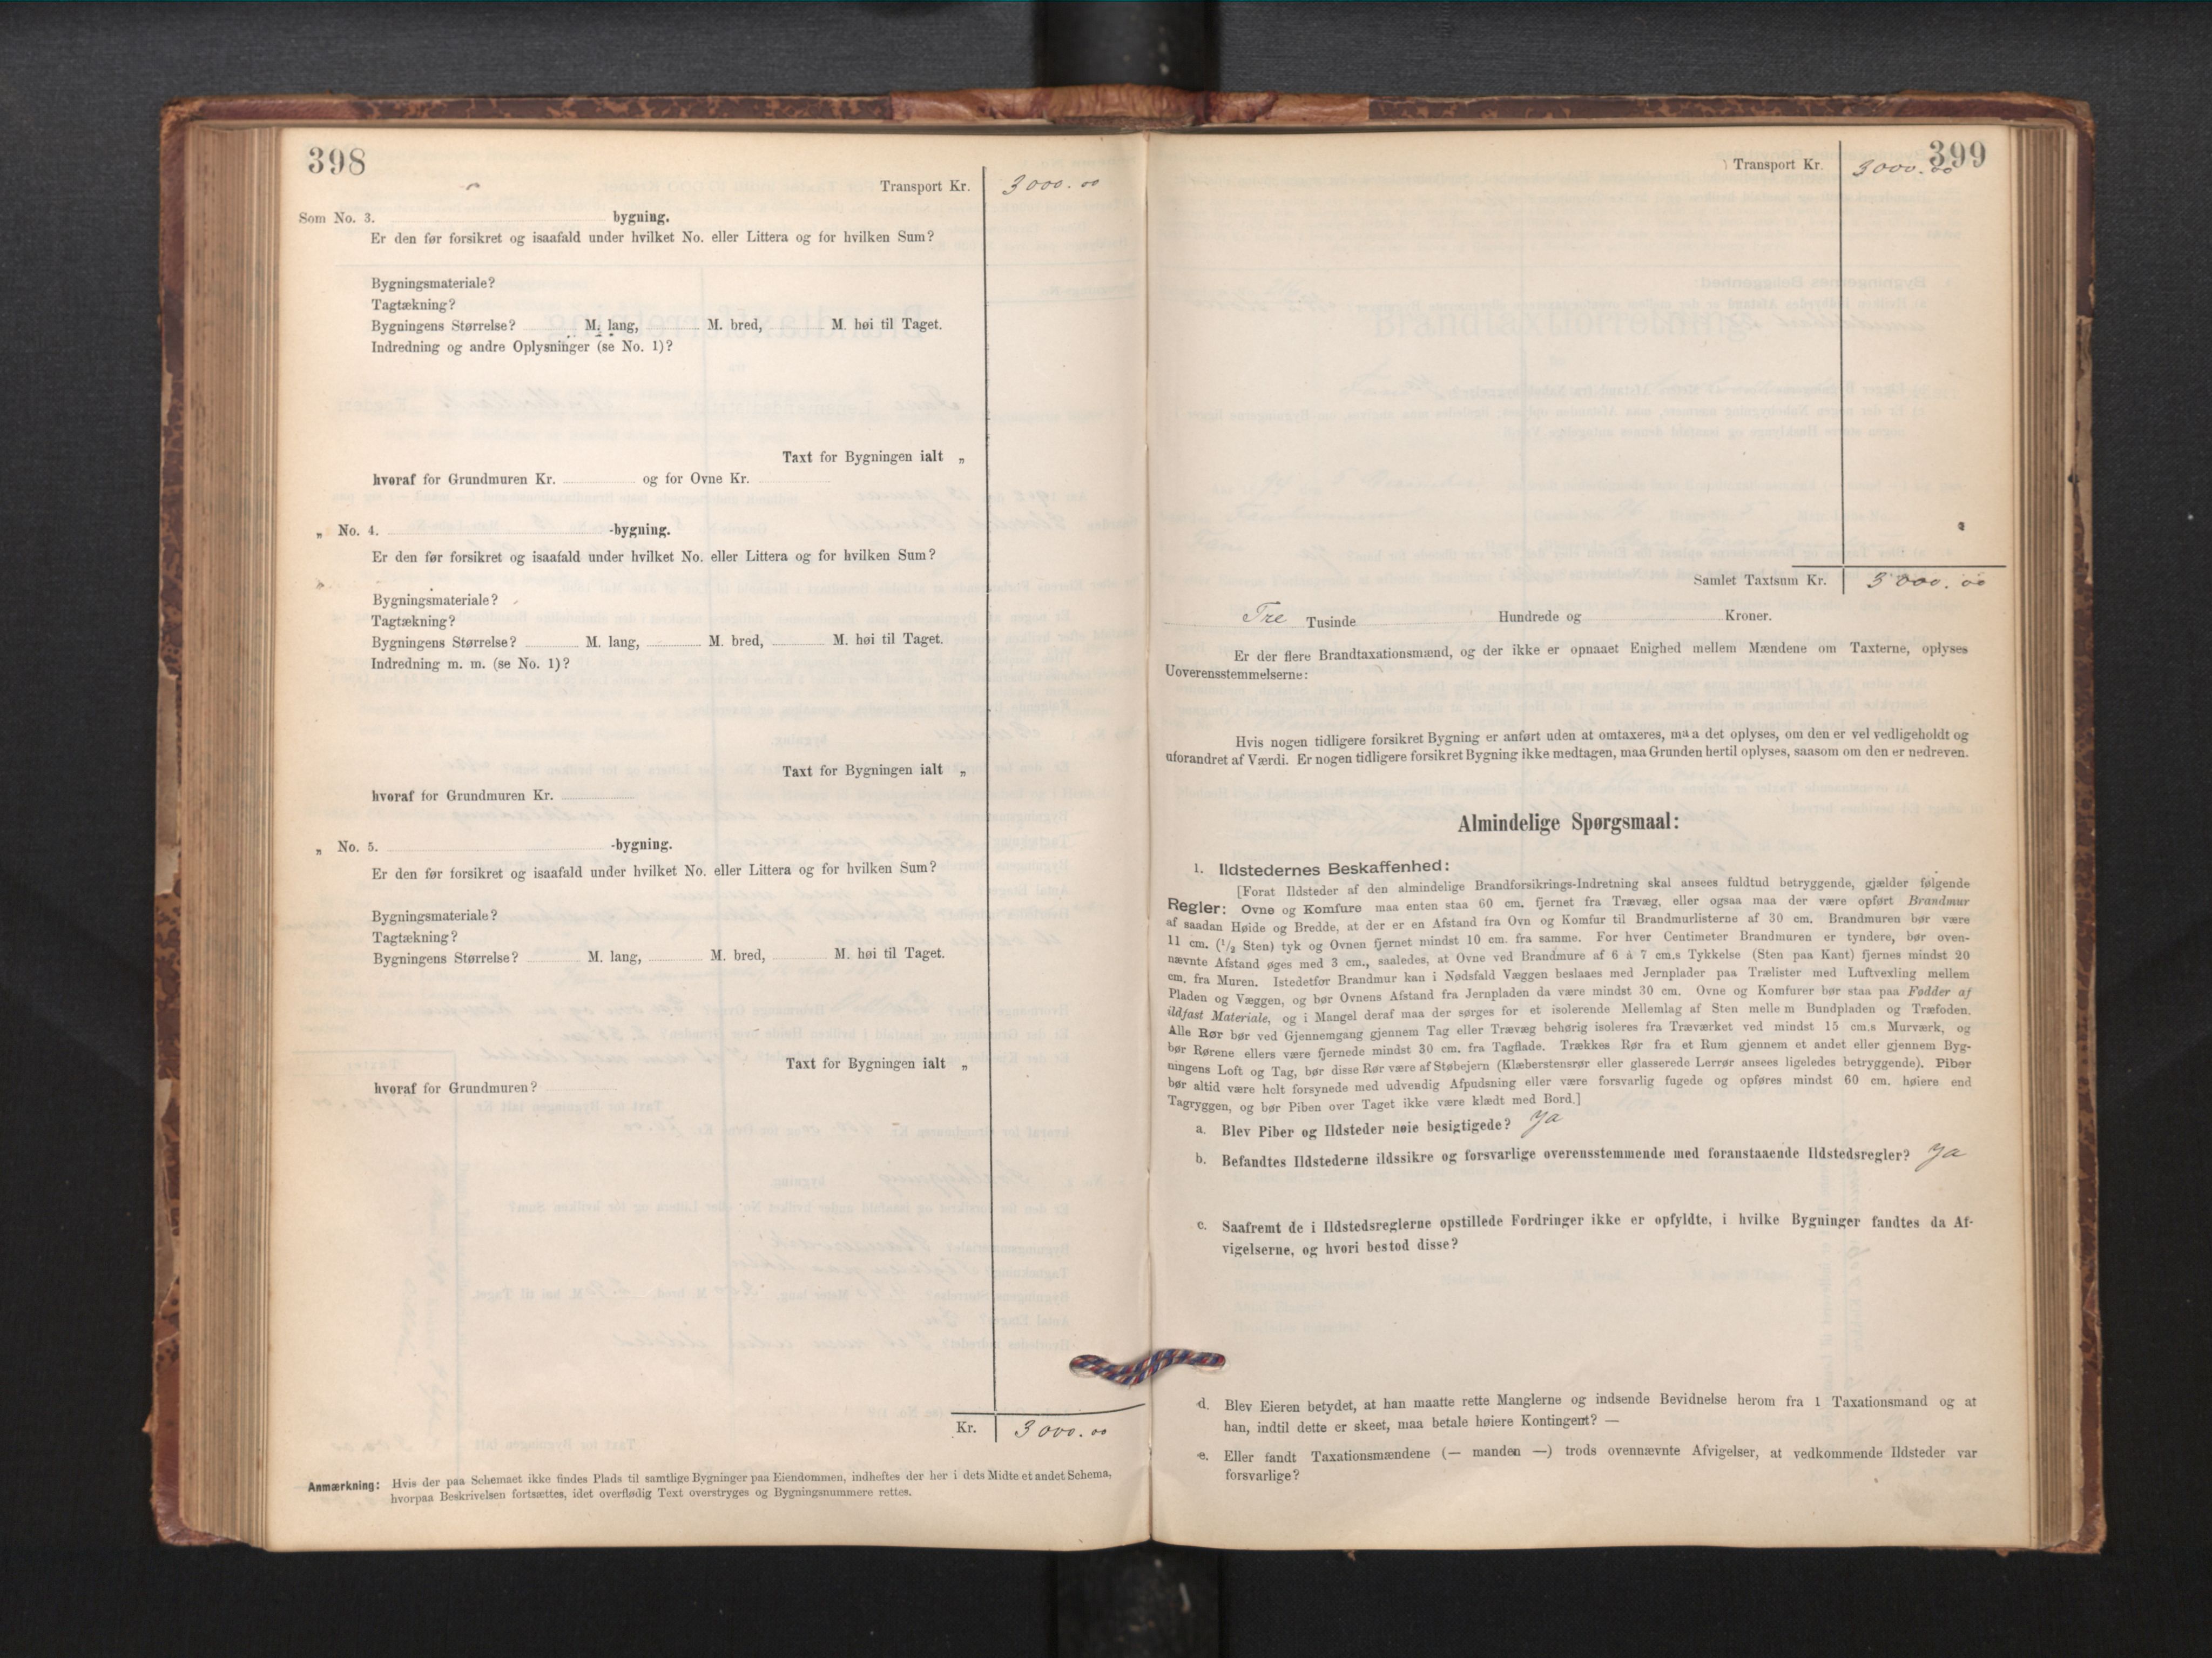 398
Transport Kr. 3000.00
Som No. 3. bygning.
Er den før forsikret og isaafald under hvilket No. eller Littera og for hvilken Sum?
Bygningsmateriale?
Tagtækning?
Bygningens Størrelse? M. lang, M. bred, M. høi til Taget.
Indredning og andre Oplysninger (se No. 1)?
Taxt for Bygningen ialt „
hvoraf for Grundmuren Kr. og for Ovne Kr.
„ No. 4. -bygning.
Er den før forsikret og isaafald under hvilket No. eller Littera og for hvilken Sum?
Bygningsmateriale?
Tagtækning?
Bygningens Størrelse? M. lang, M. bred, M. høi til Taget.
Indredning m. m. (se No. 1)?
Taxt for Bygningen ialt „
hvoraf for Grundmuren Kr.
„ No. 5. -bygning.
Er den før forsikret og isaafald under hvilket No. eller Littera og for hvilken Sum?
Bygningsmateriale?
Tagtækning?
Bygningens Størrelse? M. lang, M. bred, M. høi til Taget.
Taxt for Bygningen ialt „
hvoraf for Grundmuren?
Kr. 3000.00
Anmærkning: Hvis der paa Schemaet ikke findes Plads til samtlige Bygninger paa Eiendommen, indheftes der her i dets Midte et andet Schema,
hvorpaa Beskrivelsen fortsættes, idet overflødig Text overstryges og Bygningsnummere rettes.
399
Transport Kr. 3000.00
Samlet Taxtsum Kr. 3000.00
Tre Tusinde Hundrede og Kroner.
Er der flere Brandtaxationsmænd, og der ikke er opnaaet Enighed mellem Mændene om Taxterne, oplyses
Uoverensstemmelserne:
Hvis nogen tidligere forsikret Bygning er anført uden at omtaxeres, maa det oplyses, om den er vel vedligeholdt og
uforandret af Værdi. Er nogen tidligere forsikret Bygning ikke medtagen, maa Grunden hertil oplyses, saasom om den er nedreven.
Almindelige Spørgsmaal:
1. Ildstedernes Beskaffenhed:
[Forat Ildsteder af den almindelige Brandforsikrings-Indretning skal ansees fuldtud betryggende, gjælder følgende
Regler: Ovne og Komfure maa enten staa 60 cm. fjernet fra Trævæg, eller ogsaa maa der være opført Brandmur
af saadan Høide og Bredde, at der er en Afstand fra Ovn og Komfur til Brandmurlisterne af 30 cm. Brandmuren bør være
11 cm. (1/2 Sten) tyk og Ovnen fjernet mindst 10 cm. fra samme. For hver Centimeter Brandmuren er tyndere, bør oven-
nævnte Afstand øges med 3 cm., saaledes, at Ovne ved Brandmure af 6 á 7 cm.s Tykkelse (Sten paa Kant) fjernes mindst 20
cm. fra Muren. Istedetfor Brandmur kan i Nødsfald Væggen beslaaes med Jernplader paa Trælister med Luftvexling mellem
Pladen og Væggen, og bør Ovnens Afstand fra Jernpladen da være mindst 30 cm. Ovne og Komfurer bør staa paa Fødder af
ildfast Materiale, og i Mangel deraf maa der sørges for et isolerende Mellemlag af Sten mellem Bundpladen og Træfoden.
Alle Rør bør ved Gjennemgang gjennem Tag eller Trævæg behørig isoleres fra Træværket ved mindst 15 cm.s Murværk, og
bør Rørene ellers være fjernede mindst 30 cm. fra Tagflade. Trækkes Rør fra et Rum gjennem et andet eller gjennem Byg-
ningens Loft og Tag, bør disse Rør være af Støbejern (Klæberstensrør eller glasserede Lerrør ansees ligeledes betryggende). Piber
bør altid være helt forsynede med udvendig Afpudsning eller være forsvarlig fugede og opføres mindst 60 cm. høiere end
Tagryggen, og bør Piben over Taget ikke være klædt med Bord.]
a. Blev Piber og Ildsteder nøie besigtigede? Ja
b. Befandtes Ildstederne ildssikre og forsvarlige overensstemmende med foranstaaende Ildstedsregler? Ja
c. Saafremt de i Ildstedsreglerne opstillede Fordringer ikke er opfyldte, i hvilke Bygninger fandtes da Af-
vigelserne, og hvori bestod disse?
d. Blev Eieren betydet, at han maatte rette Manglerne og indsende Bevidnelse herom fra 1 Taxationsmand og at
han, indtil dette er skeet, maa betale høiere Kontingent? —
e. Eller fandt Taxationsmændene (— manden —) trods ovennævnte Afvigelser, at vedkommende Ildsteder var
forsvarlige?